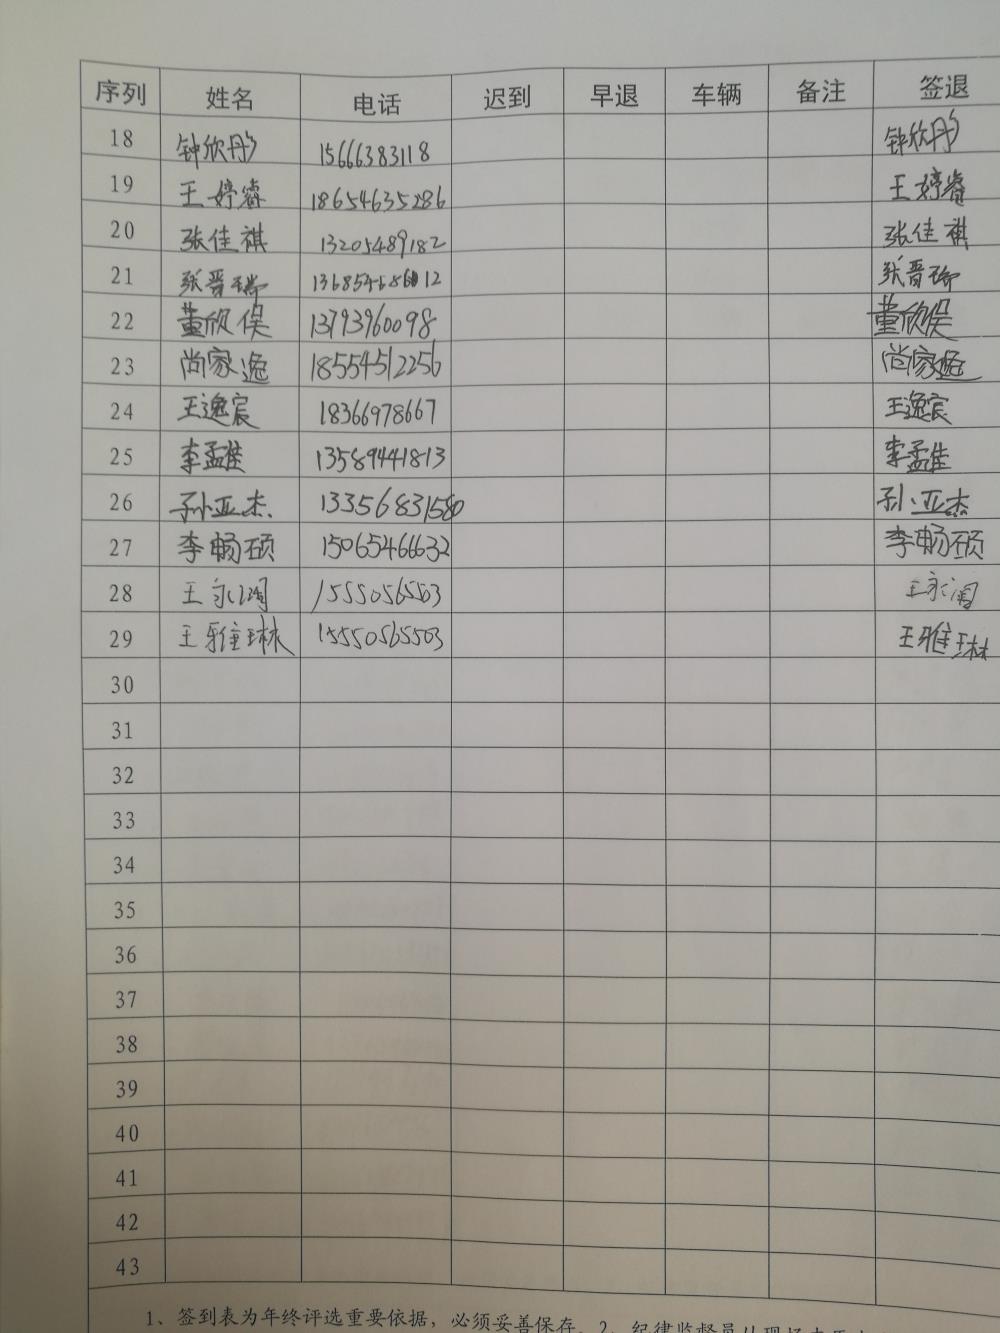 序列 姓名 电话 迟到 早退 车辆 备注 签退
18 钟欣彤 15666383118 钟欣彤
19 王婷睿 18654635286 王婷睿
20 张佳祺 13205489182 张佳祺
21 张晋瑞 张晋瑞
22 董欣俣 13793960098 董欣俣
23 尚家逸 18554512256 尚家逸
24 王逸宸 18366978667 王逸宸
25 李孟佳 13589441813 李孟佳
26 孙亚杰 13356831580 孙亚杰
27 李畅硕 15065466632 李畅硕
28 王永 15550565503 王永
29 王雅琳 15550565503 王雅琳
30
31
32
33
34
35
36
37
38
39
40
41
42
43
1、签到表为年终评选重要依据，必须妥善保存。2、纪律监督员从现场